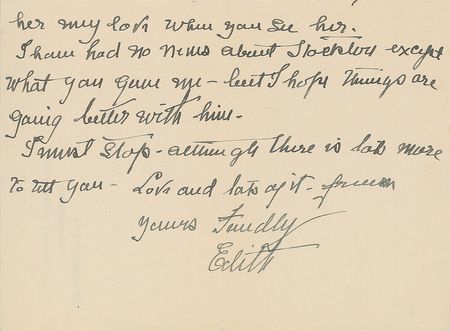 her my love when you see her.
I have had no news about Stockton except
what you gave me - but I hope things are
going better with him -
I must stop - although there is lots more
to tell you - Love and lots of it - from
yours Fondly
Edith